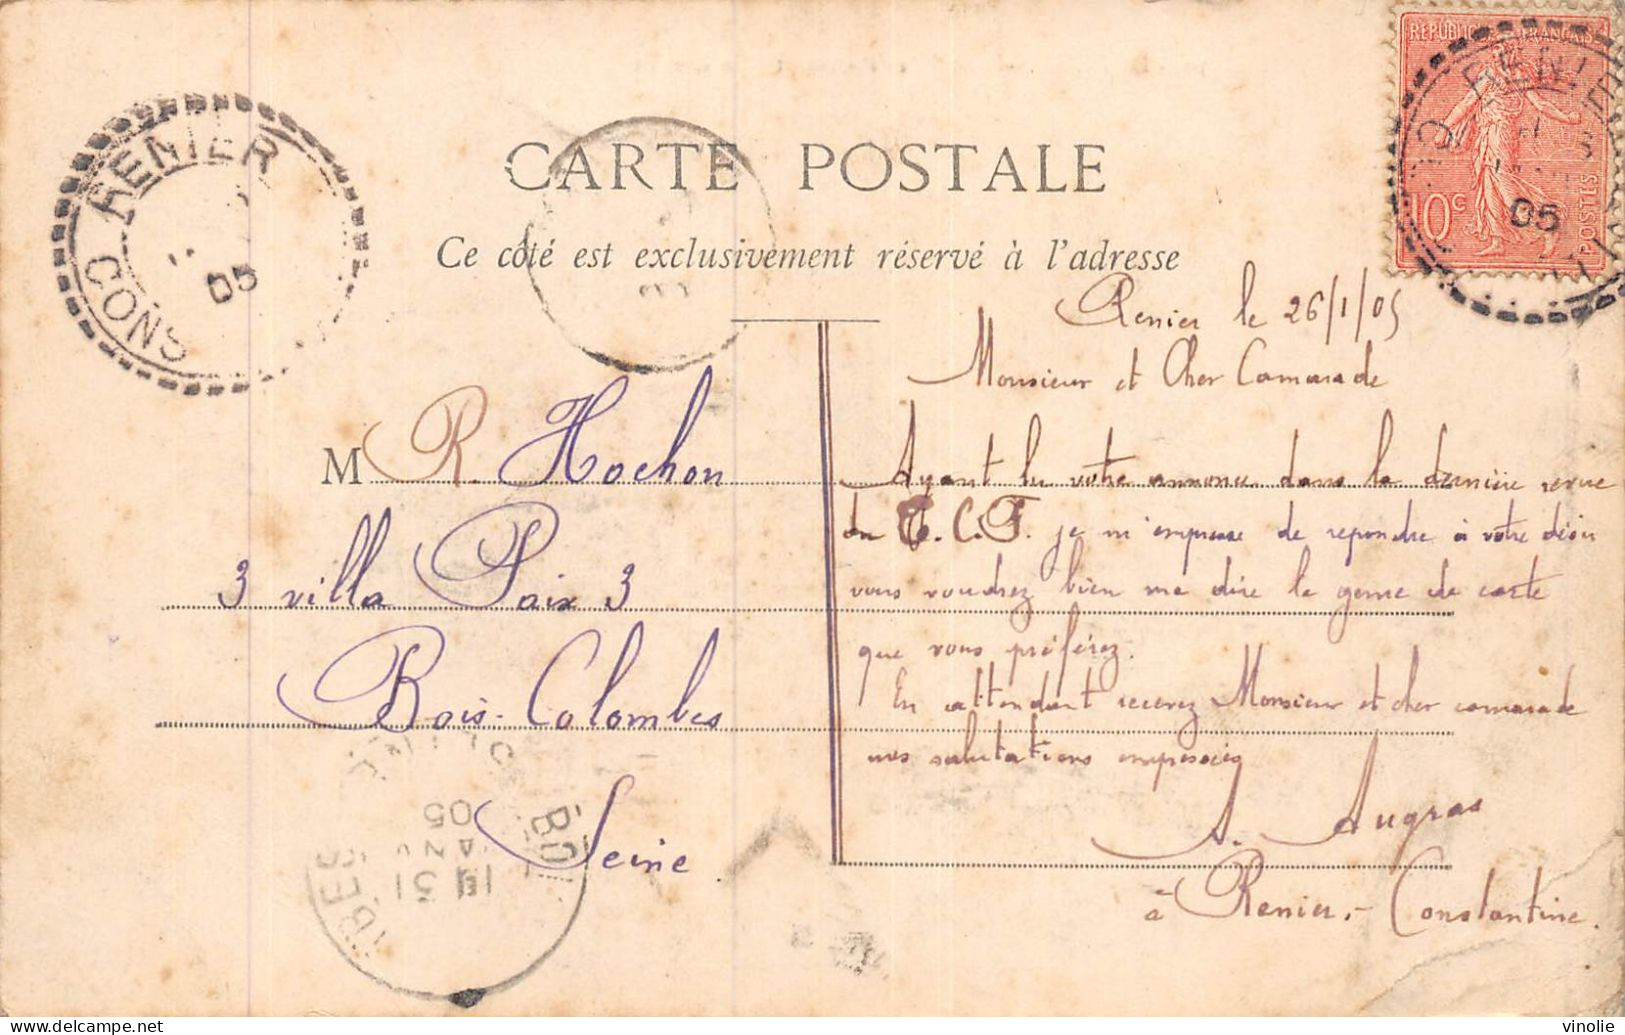 CARTE POSTALE
Ce côté est exclusivement réservé à l'adresse
REPUBLIQUE FRANÇAISE
10c
POSTES
RENIER
05
CONS
RENIER
05
CONS
Renier le 26/1/05
Monsieur et Cher Camarade
Ayant lu votre annonce dans la dernière revue
du T.C.F. je m'empresse de repondre à votre désir
vous voudrez bien me dire le genre de carte
que vous préférez.
En attendant recevez Monsieur et cher camarade
mes salutations empressées
A. Augras
à Renier, - Constantine.
M R. Hochon
3 villa Paix 3
Bois-Colombes
Seine
31
05
vinolie